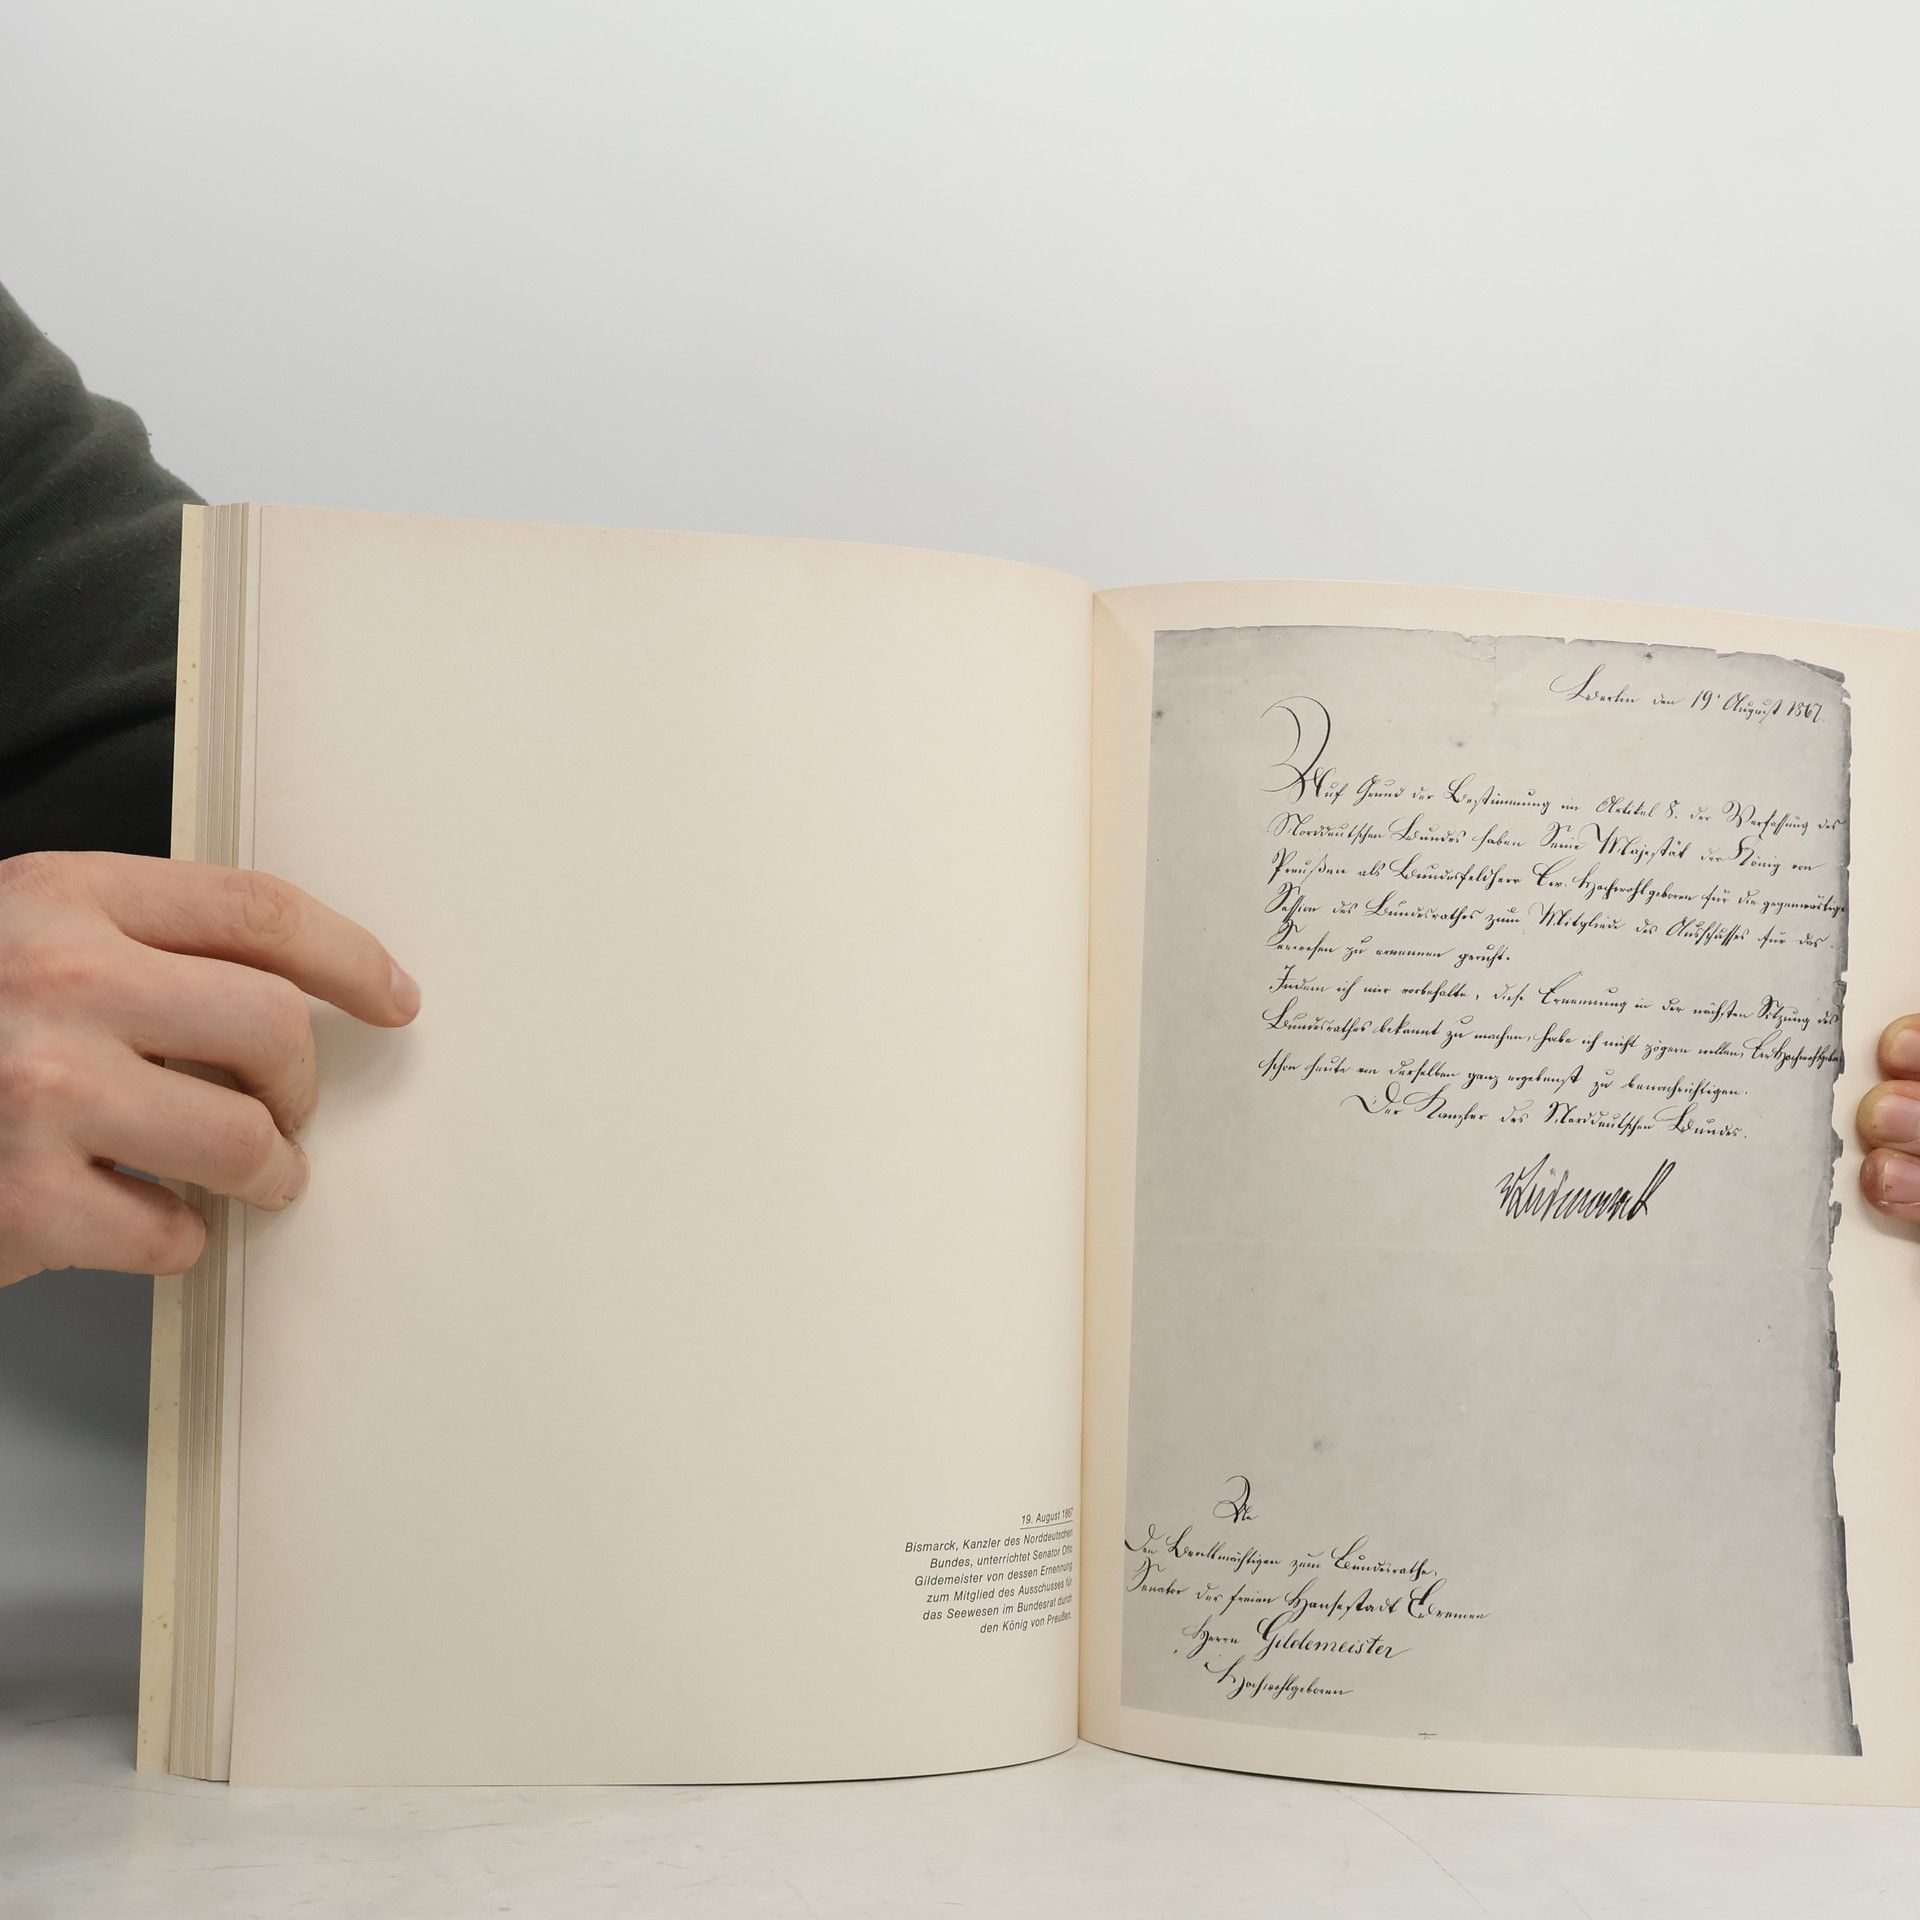 19. August 1867
Bismarck, Kanzler des Norddeutschen
Bundes, unterrichtet Senator Otto
Gildemeister von dessen Ernennung
zum Mitglied des Ausschusses für
das Seewesen im Bundesrat durch
den König von Preußen.
Berlin den 19. August 1867.
Auf Grund der Bestimmung im Artikel 8. der Verfassung des
Norddeutschen Bundes haben Seine Majestät der König von
Preußen als Bundesfeldherr Ew. Hochwohlgeboren für die gegenwärtige
Session des Bundesrathes zum Mitgliede des Ausschusses für das
Seewesen zu ernennen geruht.
Indem ich mir vorbehalte, diese Ernennung in der nächsten Sitzung des
Bundesrathes bekannt zu machen, habe ich nicht zögern wollen, Ew. Hochwohlgebor
schon heute von derselben ganz ergebenst zu benachrichtigen.
Der Kanzler des Norddeutschen Bundes.
vBismarck
An
Den Bevollmächtigen zum Bundesrathe,
Senator der freien Hansestadt Bremen
Herrn Gildemeister
Hochwohlgeboren